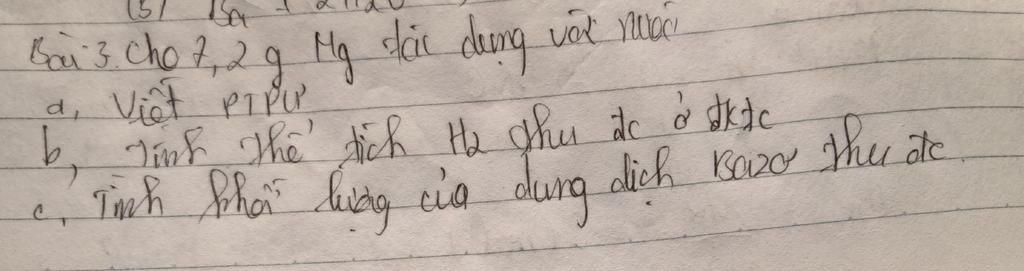 (5) Ba + 2H2O
Bài 3. Cho 7,2 g Mg tác dụng với nước
a, Viết PTPƯ
b, Tính thể tích H2 thu đc ở đktc
c, Tính khối lượng của dung dịch Bazơ thu đc